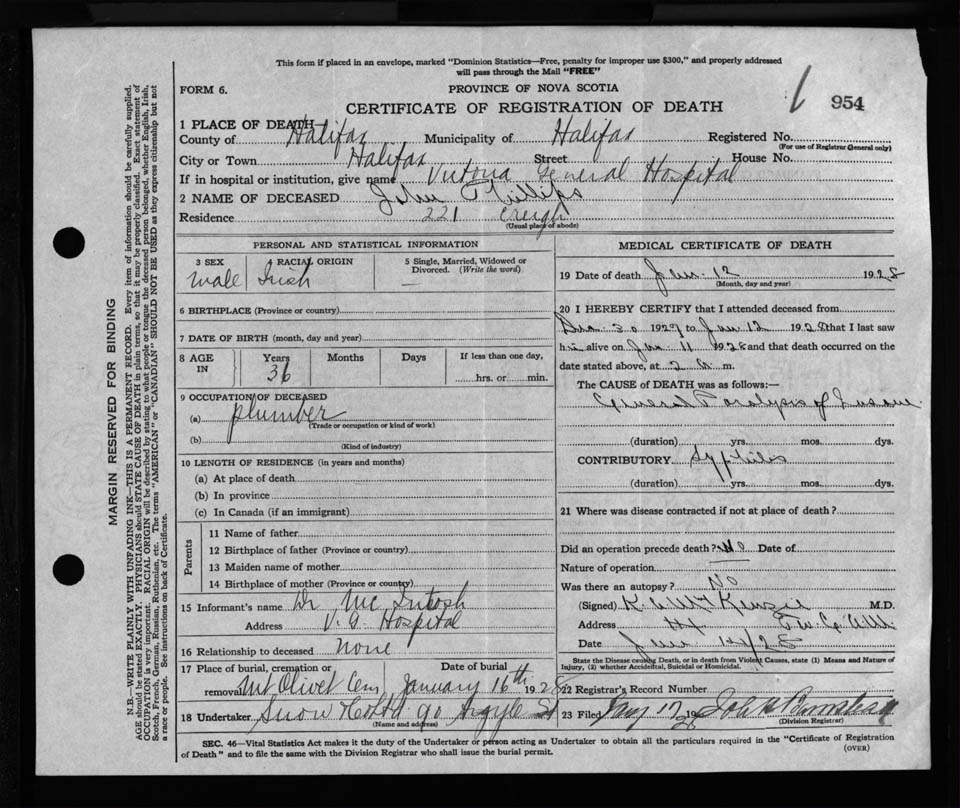 This form if placed in an envelope, marked "Dominion Statistics—Free, penalty for improper use $300," and properly addressed
will pass through the Mail "FREE"
FORM 6.
PROVINCE OF NOVA SCOTIA
954
CERTIFICATE OF REGISTRATION OF DEATH
1 PLACE OF DEATH
County of Halifax Municipality of Halifax Registered No.
(For use of Registrar General only)
City or Town Halifax Street House No.
If in hospital or institution, give name Victoria General Hospital
2 NAME OF DECEASED John Phillips
Residence 221 Creigh
(Usual place of abode)
PERSONAL AND STATISTICAL INFORMATION
3 SEX 4 RACIAL ORIGIN 5 Single, Married, Widowed or Divorced. (Write the word)
Male Irish —
6 BIRTHPLACE (Province or country)
7 DATE OF BIRTH (month, day and year)
8 AGE IN Years Months Days If less than one day,
36 hrs. or min.
9 OCCUPATION OF DECEASED
(a) plumber
(Trade or occupation or kind of work)
(b)
(Kind of industry)
10 LENGTH OF RESIDENCE (in years and months)
(a) At place of death
(b) In province
(c) In Canada (if an immigrant)
Parents
11 Name of father
12 Birthplace of father (Province or country)
13 Maiden name of mother
14 Birthplace of mother (Province or country)
15 Informant's name Dr McIntosh
Address V. G. Hospital
16 Relationship to deceased none
17 Place of burial, cremation or Date of burial
removal Mt Olivet Cem January 16th 1928
18 Undertaker Snow & Co Ltd 90 Argyle St
(Name and address)
MEDICAL CERTIFICATE OF DEATH
19 Date of death Jan. 12 1928
(Month, day and year)
20 I HEREBY CERTIFY that I attended deceased from
Dec. 30 1927 to Jan 12 1928 that I last saw
him alive on Jan. 11 1928 and that death occurred on the
date stated above, at 2 a. m.
The CAUSE of DEATH was as follows:—
General Paralysis of Insane.
(duration) yrs. mos. dys.
CONTRIBUTORY Syphilis
(duration) yrs. mos. dys.
21 Where was disease contracted if not at place of death?
Did an operation precede death? No Date of
Nature of operation
Was there an autopsy? No
(Signed) K. McKenzie M.D.
Address Hx.
Date
State the Disease causing Death, or in death from Violent Causes, state (1) Means and Nature of
Injury, (2) whether Accidental, Suicidal or Homicidal.
22 Registrar's Record Number
23 Filed Jany 17 1928
(Division Registrar)
SEC. 46—Vital Statistics Act makes it the duty of the Undertaker or person acting as Undertaker to obtain all the particulars required in the "Certificate of Registration
of Death" and to file the same with the Division Registrar who shall issue the burial permit. (OVER)
MARGIN RESERVED FOR BINDING
N.B.—WRITE PLAINLY WITH UNFADING INK—THIS IS A PERMANENT RECORD. Every item of information should be carefully supplied.
AGE should be stated EXACTLY. PHYSICIANS should STATE CAUSE OF DEATH in plain terms, so that it may be properly classified. Exact statement of
OCCUPATION is very important. RACIAL ORIGIN will be described by stating to what people or tongue the deceased person belonged, whether English, Irish,
Scotch, French, German, Russian, Ruthenian, etc. The terms "AMERICAN" or "CANADIAN" SHOULD NOT BE USED as they express citizenship but not
a race or people. See instructions on back of Certificate.